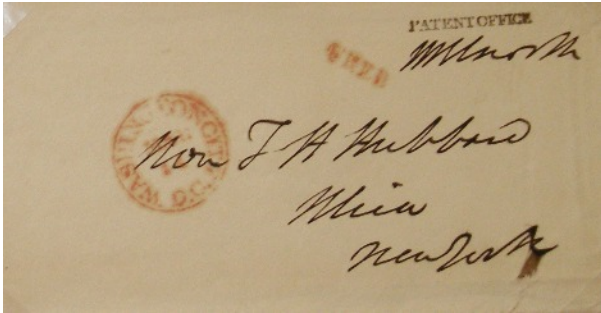 PATENT OFFICE
FREE
WASHINGTON CITY
D.C.
Hon T H Hubbard
Utica
New York